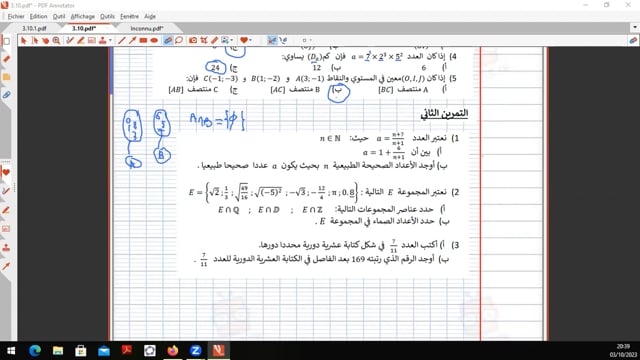 3.10.pdf* - PDF Annotator
Fichier Edition Outil Affichage Outils Fenêtre Aide
3.10.1.pdf 3.10.pdf* Inconnu.pdf*
4) إذا كان العدد a = 7¹ × 2³ × 5² فإن كم(Dₐ) يساوي:
أ) 6 ب) 12 ج) 24
5) إذا كان (O, I, J) معين في المستوي والنقاط A(3; −1) و B(1; −2) و C(−1; −3) فإن:
أ) A منتصف [BC] ب) B منتصف [AC] ج) C منتصف [AB]
التمرين الثاني
A∩B = {∅}
A B
1) نعتبر العدد a = (n+7)/(n+1) حيث: n ∈ ℕ
أ) بين أن a = 1 + 6/(n+1)
ب) أوجد الأعداد الصحيحة الطبيعية n بحيث يكون a عددا صحيحا طبيعيا.
2) نعتبر المجموعة E التالية: E = {√2 ; 1/3 ; √(49/16) ; √(−5)² ; −√3 ; −12/4 ; π ; 0.8}
أ) حدد عناصر المجموعات التالية: E∩ℤ ; E∩𝔻 ; E∩ℚ
ب) حدد الأعداد الصماء في المجموعة E.
3) أ) أكتب العدد 7/11 في شكل كتابة عشرية دورية محددا دورها.
ب) أوجد الرقم الذي رتبته 169 بعد الفاصل في الكتابة العشرية الدورية للعدد 7/11.
20:39
03/10/2023